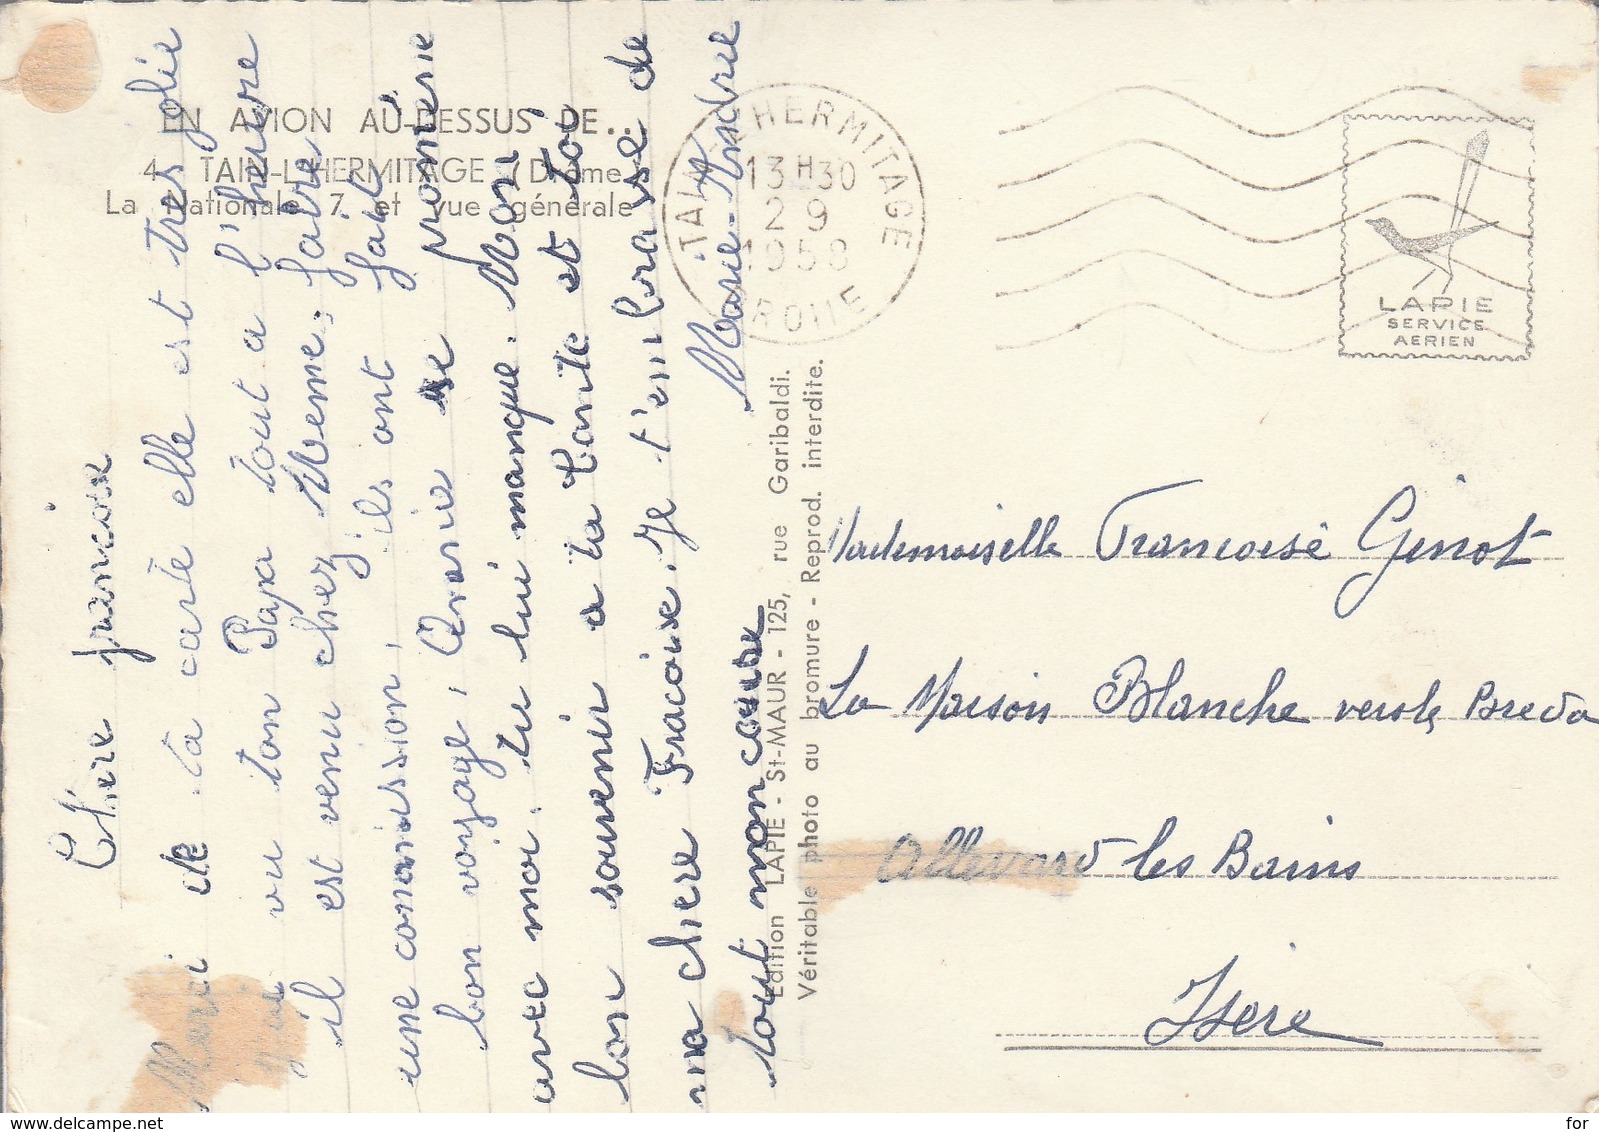 EN AVION AU-DESSUS DE...
4 - TAIN-L'HERMITAGE (Drôme)
La Nationale 7 et vue générale
TAIN-L'HERMITAGE
13 H 30
2 9
1958
DROME
LAPIE
SERVICE
AERIEN
Chere francoise
Merci de ta carte elle est tres jolie
vu ton Papa tout a l'heure
il est venu chez Meme, faire
une comission, ils ont fait
bon voyage,
avec moi. tu lui manque.
bon souvenir a ta tante et toi
ma chere Fracoise. Je t'embrasse de
tout mon coeur
Marie-Andree
Edition LAPIE - St-MAUR - 125, rue Garibaldi.
Véritable photo au bromure - Reprod. interdite.
Mademoiselle Francoise Genot
La Maison Blanche vers le Breda
Allevard les Bains
Isere
delcampe.net
for